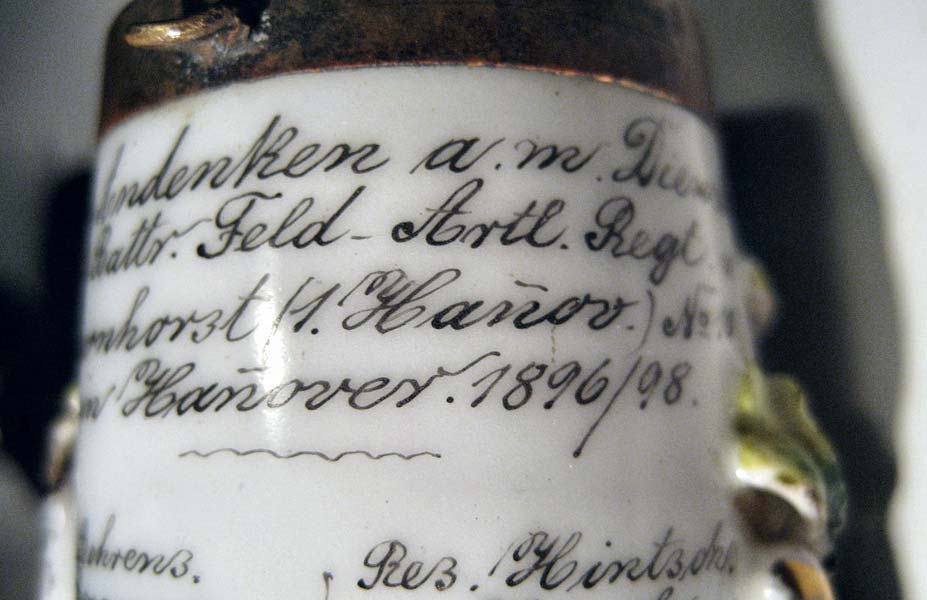 Andenken a. m. Dien
Battr. Feld-Artl. Regt
rnhorst (1. Hañov.) No 10
in Hañover. 1896/98.
Behrens. Res. Hintsche.